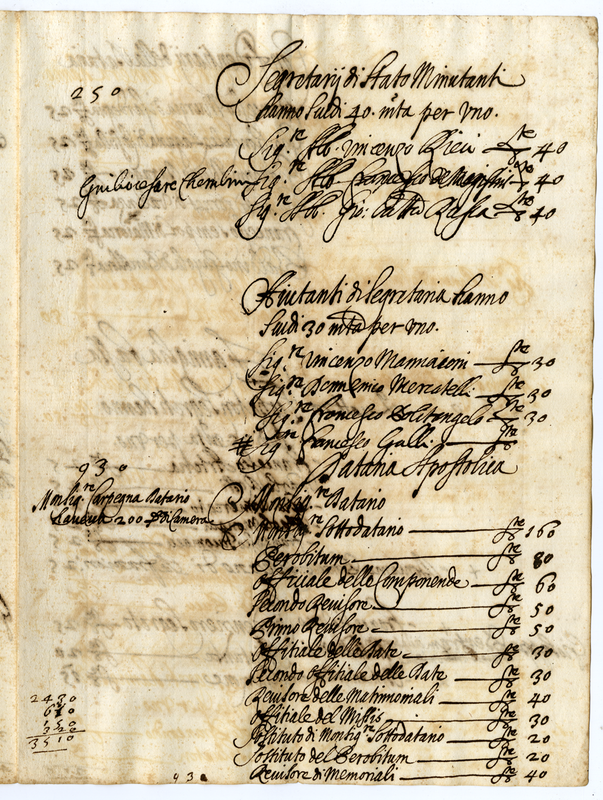 250
Segretarij di Stato Minutanti
hanno scudi 40. mta per uno.
Sig.re Abb. Vincenzo Ricci 40
Giuliocesare Sig.re Abb. Francesco de 40
Sig.re Abb. Gio: Batta 40
Aiutanti di Segretaria hanno
scudi 30 mta per uno.
Sig.re Vincenzo 30
Sig.re Domenico Mercatelli 30
Sig.re Francesco 30
# Sig.re Francesco Galli
930
Dataria Apostolica
Monsig.re Sardegna Datario
200 di Camera
Monsig.re Datario
Monsig.re Sottodatario 160
Perobitum 80
Officiale delle Componende 60
Secondo Revisore 50
Primo Revisore 50
Offitiale delle Date 30
Secondo Offitiale delle Date 30
Revisore delle Matrimoniali 40
Offitiale del Missis 30
Sostituto di Monsig.re Sottodatario 20
Sostituto del Perobitum 20
Revisore di Memoriali 40
2430
150
320
3510
930